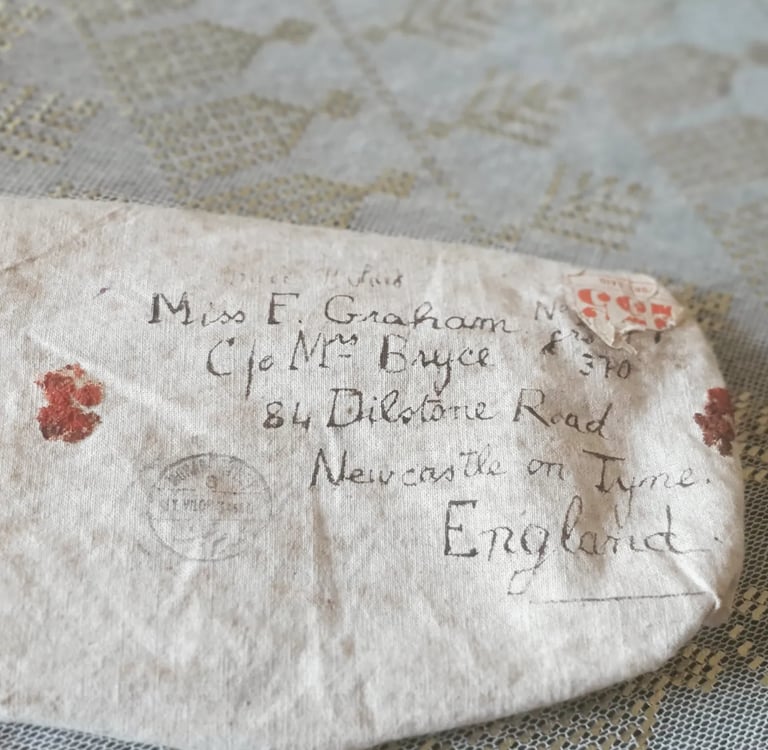 Miss F. Graham
C/o Mrs Bryce
84 Dilstone Road
Newcastle on Tyne.
England
No
370
55